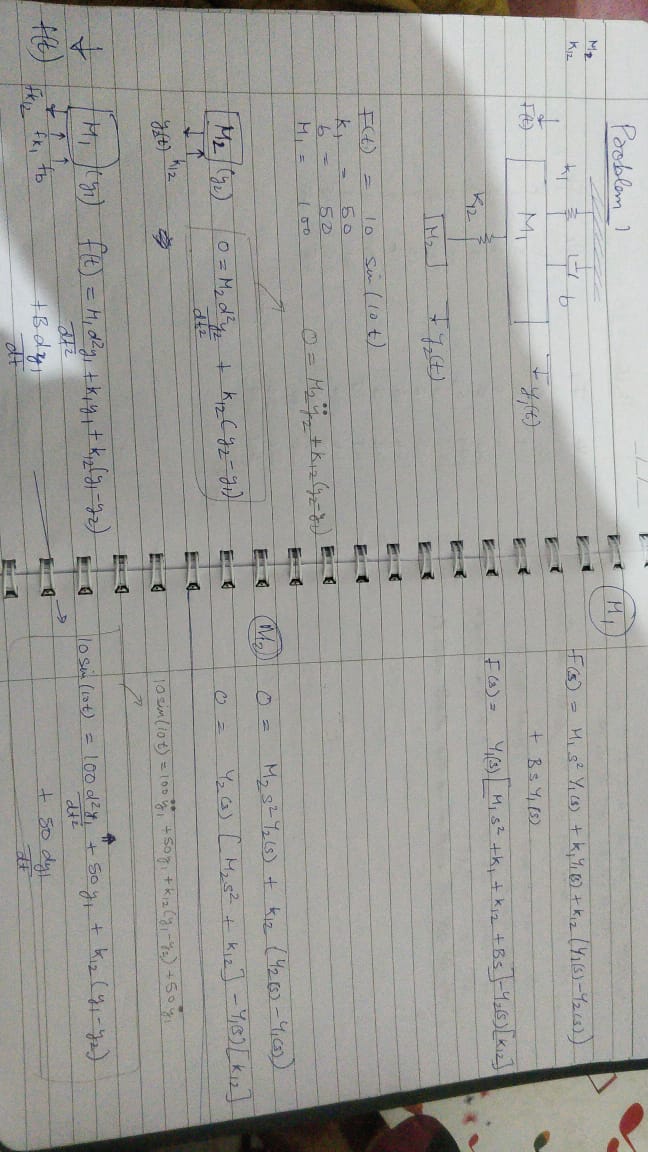 Problem 1
M2
K12
K1
b
F(t)
M1
y1(t)
K12
M2
y2(t)
F(t) = 10 sin(10t)
K1 = 50
b = 50
M1 = 100
0 = M2ÿ2 + K12(y2-y1)
M2 (y2)
0 = M2 d²y2/dt² + K12(y2-y1)
K12
M1 (y1)
f(t) = M1 d²y1/dt² + K1y1 + K12(y1-y2)
+ B dy1/dt
f(t)
fK12 fK1 fb
M1
F(s) = M1 s² Y1(s) + K1Y1(s) + K12 (Y1(s) - Y2(s))
+ BsY1(s)
F(s) = Y1(s) [M1s² + K1 + K12 + Bs] - Y2(s) [K12]
M2
0 = M2s²Y2(s) + K12 (Y2(s) - Y1(s))
0 = Y2(s) [M2s² + K12] - Y1(s) [K12]
10sin(10t) = 100ÿ1 + 50y1 + K12(y1-y2) + 50ẏ1
10sin(10t) = 100 d²y1/dt² + 50y1 + K12 (y1-y2)
+ 50 dy1/dt